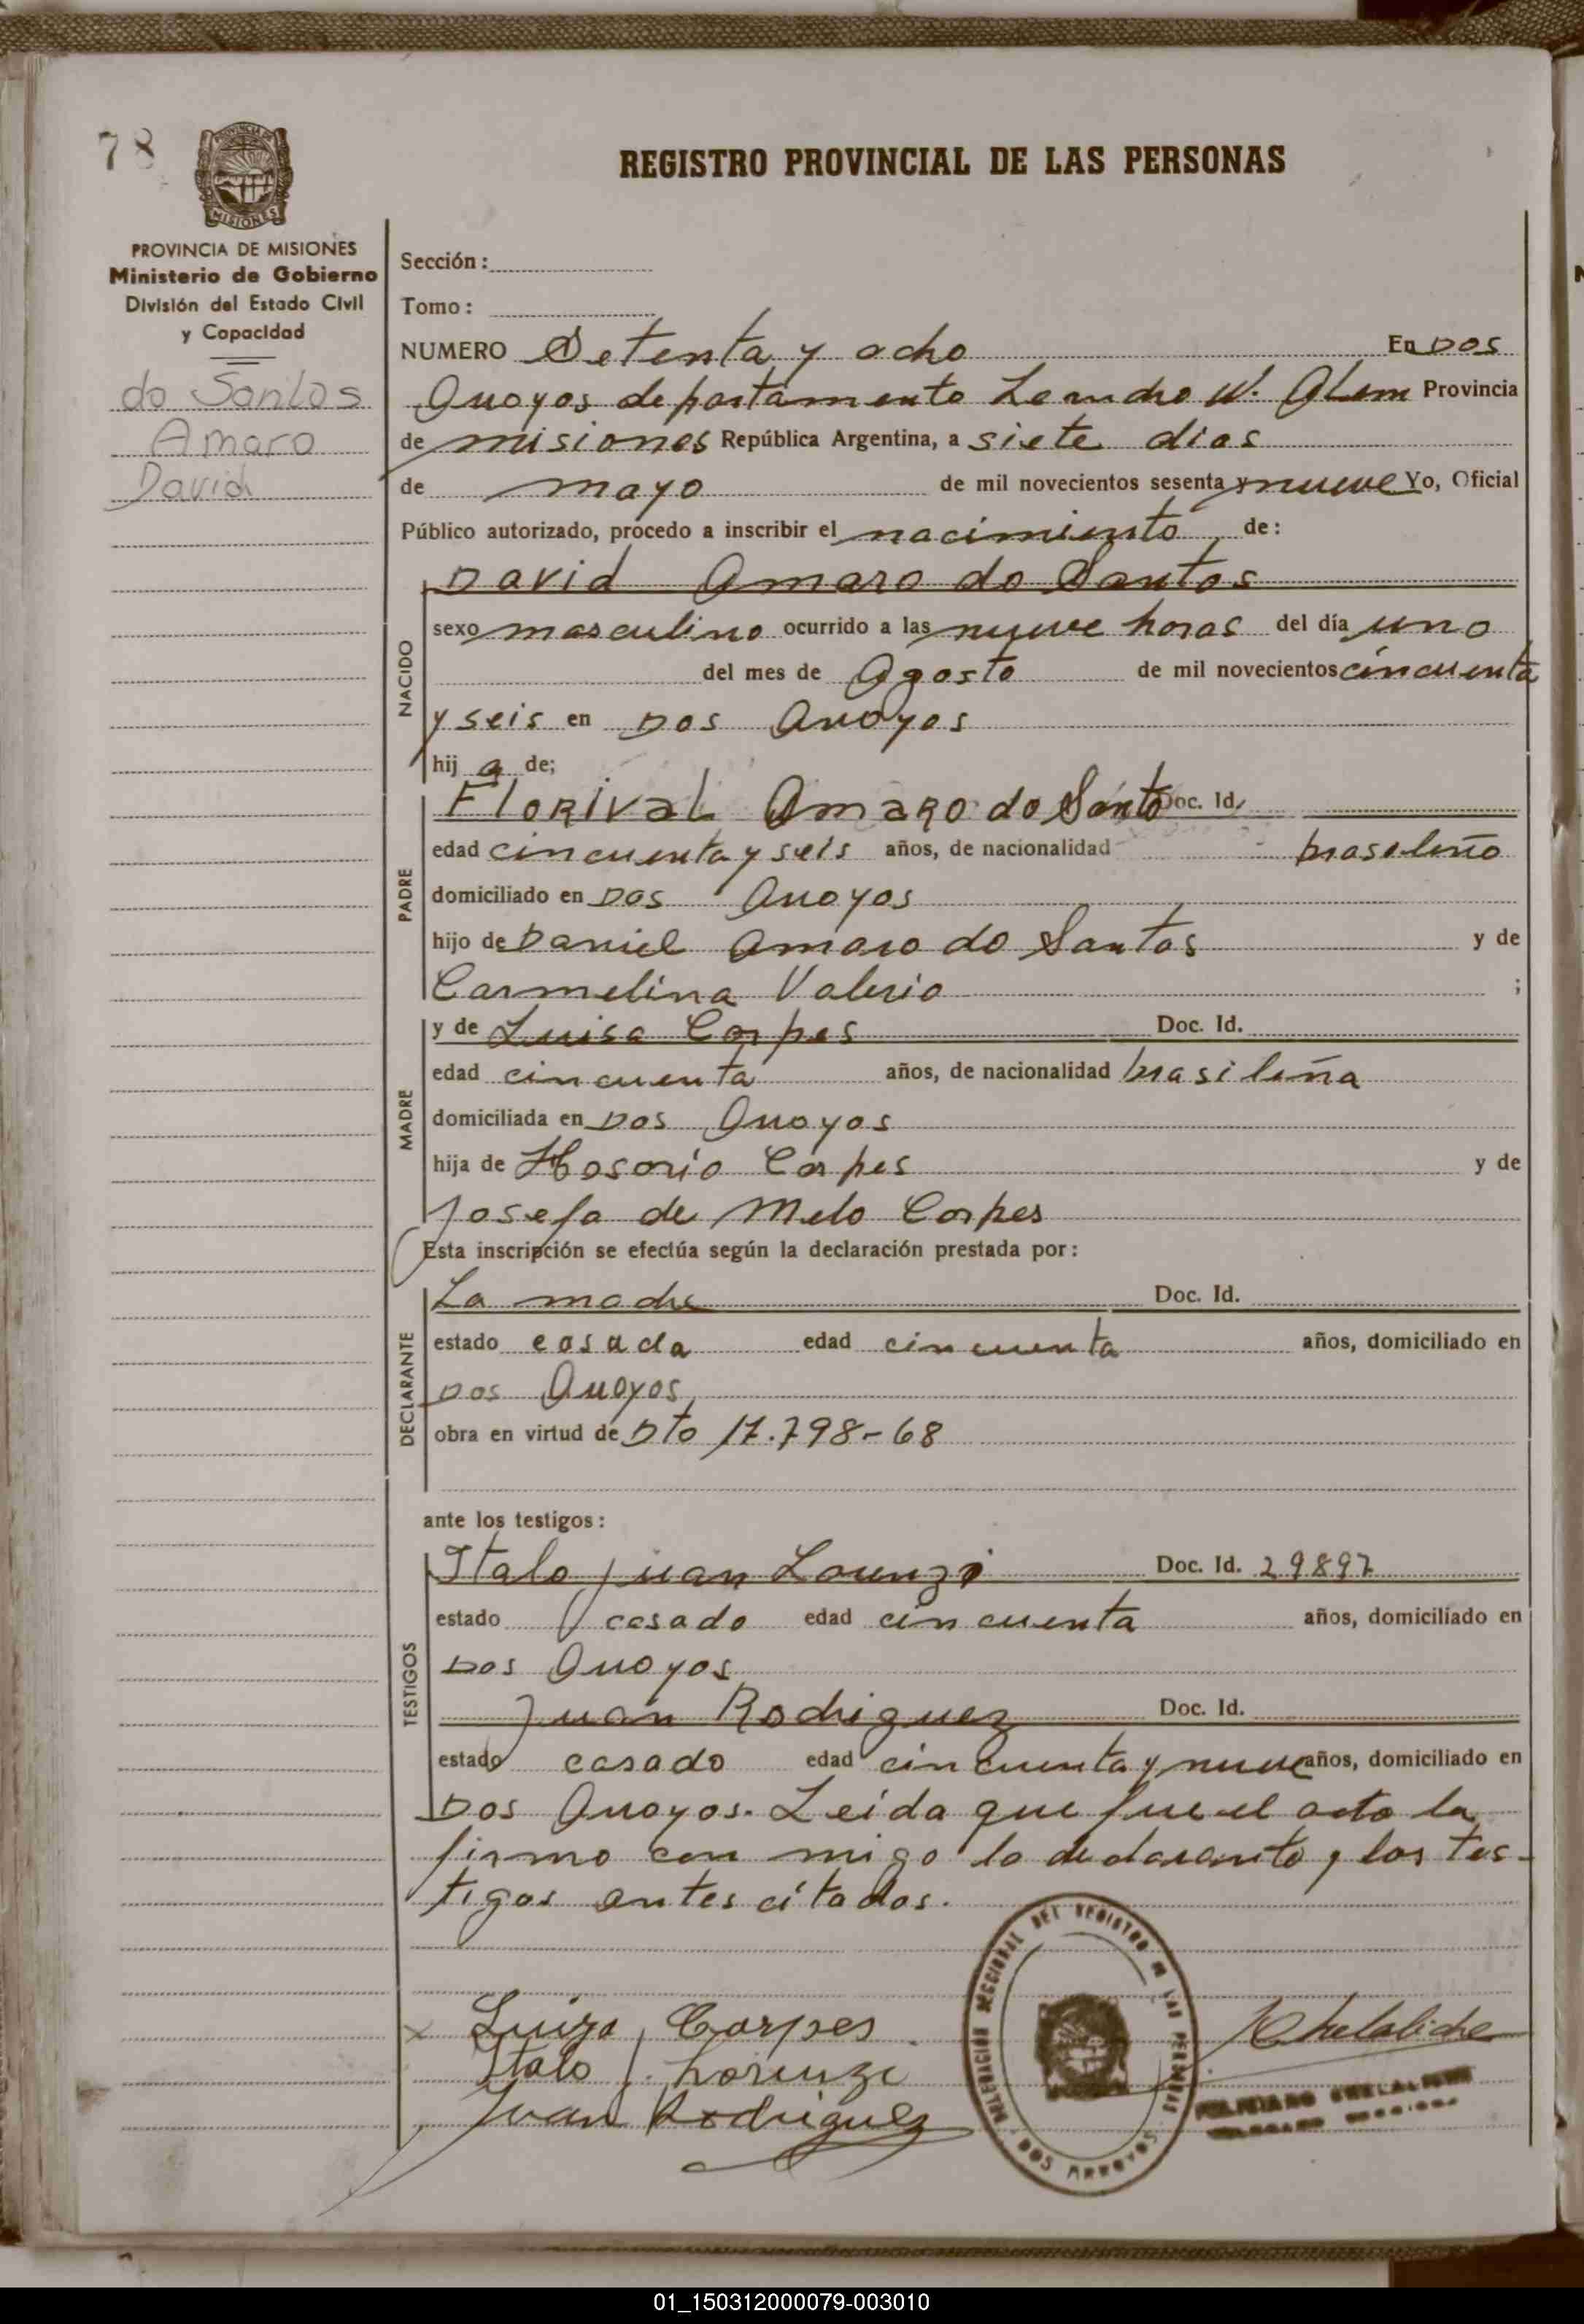 78
PROVINCIA DE MISIONES
Ministerio de Gobierno
División del Estado Civil
y Capacidad
do Santos
Amaro
David
REGISTRO PROVINCIAL DE LAS PERSONAS
Sección:
Tomo:
NUMERO Setenta y ocho En Dos
Arroyos departamento Leandro N. Alem Provincia
de misiones República Argentina, a siete dias
de mayo de mil novecientos sesenta y nueve Yo, Oficial
Público autorizado, procedo a inscribir el nacimiento de:
David Amaro do Santos
NACIDO
sexo masculino ocurrido a las nueve horas del día uno
del mes de Agosto de mil novecientos cincuenta
y seis en Dos Arroyos
hij a de;
PADRE
Florival Amaro do Santo Doc. Id.
edad cincuenta y seis años, de nacionalidad brasileño
domiciliado en Dos Arroyos
hijo de Daniel Amaro do Santos y de
Carmelina Valerio ;
MADRE
y de Luisa Corpes Doc. Id.
edad cincuenta años, de nacionalidad brasileña
domiciliada en Dos Arroyos
hija de Hosorio Corpes y de
Josefa de Melo Corpes
Esta inscripción se efectúa según la declaración prestada por:
DECLARANTE
La madre Doc. Id.
estado casada edad cincuenta años, domiciliado en
Dos Arroyos
obra en virtud de Dto 17.798-68
ante los testigos:
TESTIGOS
Italo Juan Lorenzi Doc. Id. 29897
estado casado edad cincuenta años, domiciliado en
Dos Arroyos
Juan Rodriguez Doc. Id.
estado casado edad cincuenta y nueve años, domiciliado en
Dos Arroyos. Leida que fue el acta la
firmo con migo la declarante y los tes-
tigos antes citados.
x Luiza Corpes
Italo J. Lorenzi
Juan Rodriguez
DELEGACIÓN SECCIONAL DEL REGISTRO DE LAS PERSONAS
DOS ARROYOS
01_150312000079-003010